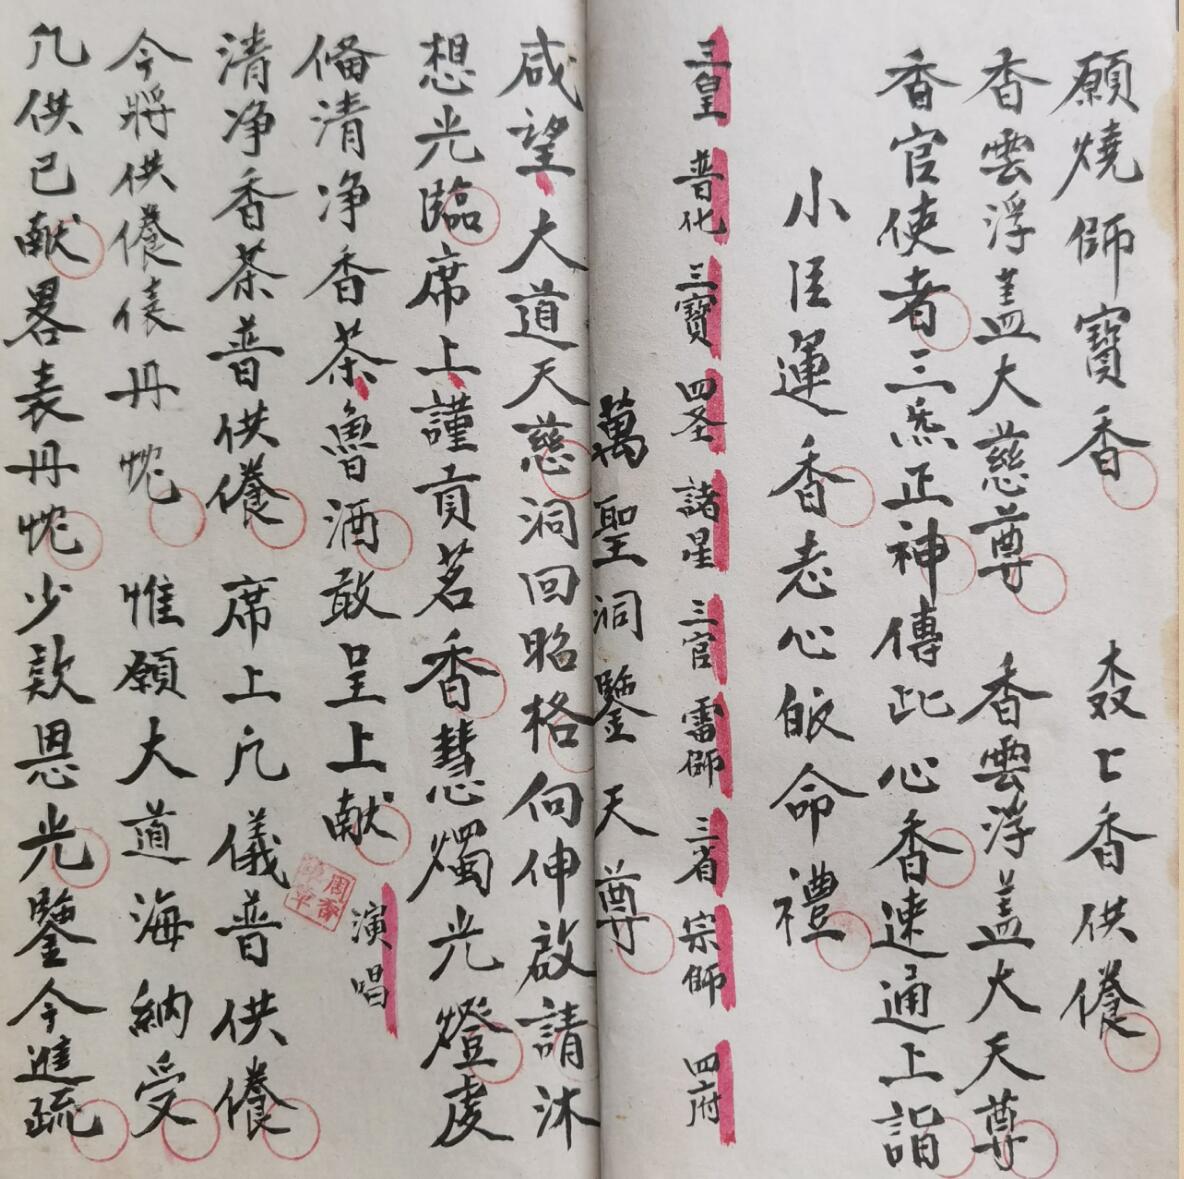 願燒師寶香 裊〻香供養
香雲浮盖大慈尊 香雲浮盖大天尊
香官使者三炁正神傳此心香速通上詣
小臣運香志心皈命禮
三皇 普化 三寶 四圣 諸星 三官 雷師 三省 宗師 四府
萬聖洞鑒天尊
咸望大道天慈洞回昭格向伸啟請沐
想光臨席上謹貢茗香慧燭光燈虔
俻清净香茶魯酒敢呈上献
演唱
清净香茶普供養 席上凢儀普供養
今將供養儀丹忱 惟願大道海納受
凢供已献畧表丹忱少歎恩光鑒今進疏